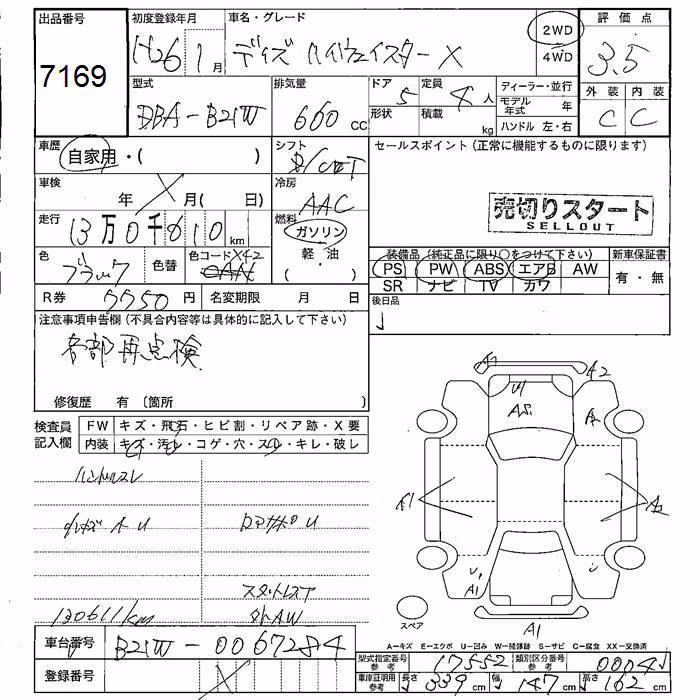 出品番号
7169
初度登録年月
H26 1 月
車名・グレード
デイズ ハイウェイスター X
2WD
4WD
評価点
3.5
外装 内装
C C
型式
DBA-B21W
排気量
660 cc
ドア 5
形状
定員 4 人
積載 kg
ディーラー・並行
モデル年式 年
ハンドル 左・右
車歴
自家用・( )
シフト
車検
年 月( 日)
冷房
AAC
走行
13万0千610 km
燃料
ガソリン
軽・油
( )
セールスポイント(正常に機能するものに限ります)
売切りスタート
SELLOUT
色
ブラック
色替
色コード X42
装備品(純正品に限り○をつけて下さい)
PS PW ABS エアB AW
SR ナビ TV カワ
新車保証書
有・無
R券 7750 円
名変期限 月 日
後日品
注意事項申告欄(不具合内容等は具体的に記入して下さい)
各部再点検
修復歴 有 〔箇所 〕
検査員記入欄
FW キズ・飛石・ヒビ割・リペア跡・X要
内装 キズ・汚レ・コゲ・穴・スレ・キレ・破レ
ハンドルスレ
130611km
外AW
A2
A2
A1
A2
A1
A1
スペア
A=キズ E=エクボ U=凹み W=補修跡 S=サビ C=腐食 XX=交換済
車台番号 B21W-0067284
登録番号
型式指定番号 参考 17552
類別区分番号 参考 0004
車庫証明用 参考 長さ 339 cm 幅 147 cm 高さ 162 cm